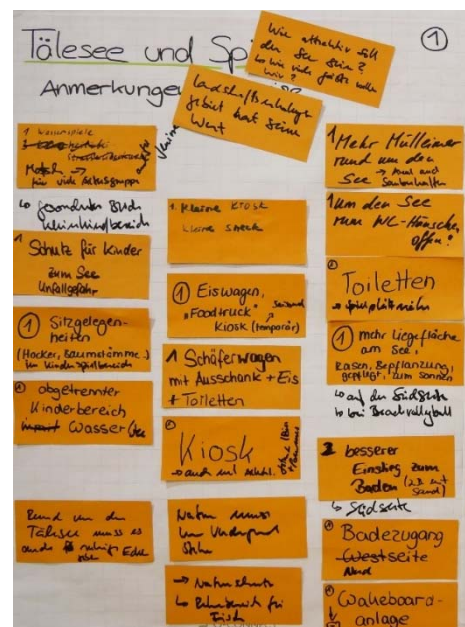 Tälesee und Sp
Anmerkungen
1
Wie attraktiv soll
der See sein?
↳ Wie viele Gäste wollen
wir?
Landschaftsschutz
gebiet hat seinen
Wert
1 Wasserspiele
Matsch →
für viele Altersgruppen
↳ gesonderter Bach
Kleinkindbereich
1 Schutz für Kinder
zum See
Unfallgefahr
1 Sitzgelegen-
heiten
(Hocker, Baumstämme..)
im Kinderspielbereich
abgetrennter
Kinderbereich
Wasser/See
Rund um den
Tälesee muss es
auch ruhige Ecken
1. Kleine Kiosk
kleine snecks
1 Eiswagen,
"Foodtruck"
Kiosk (temporär)
1 Schäferwagen
mit Ausschank + Eis
+ Toiletten
Kiosk
→ auch mit
Natur muss
im Vordergrund
stehen
→ Naturschutz
↳
1 Mehr Mülleimer
rund um den
See → und
Sauberhalten
1 um den See
rum WC-Häuschen
offen?
Toiletten
1 mehr Liegefläche
am See,
Rasen, Bepflanzung,
gepflegt, zum sonnen
↳ auf der Südseite
↳ bei Beachvolleyball
2 besserer
Einstieg zum
Baden (z.B. mit
Sand)
↳ Südseite
Badezugang
Westseite
Nord
Wakeboard-
anlage